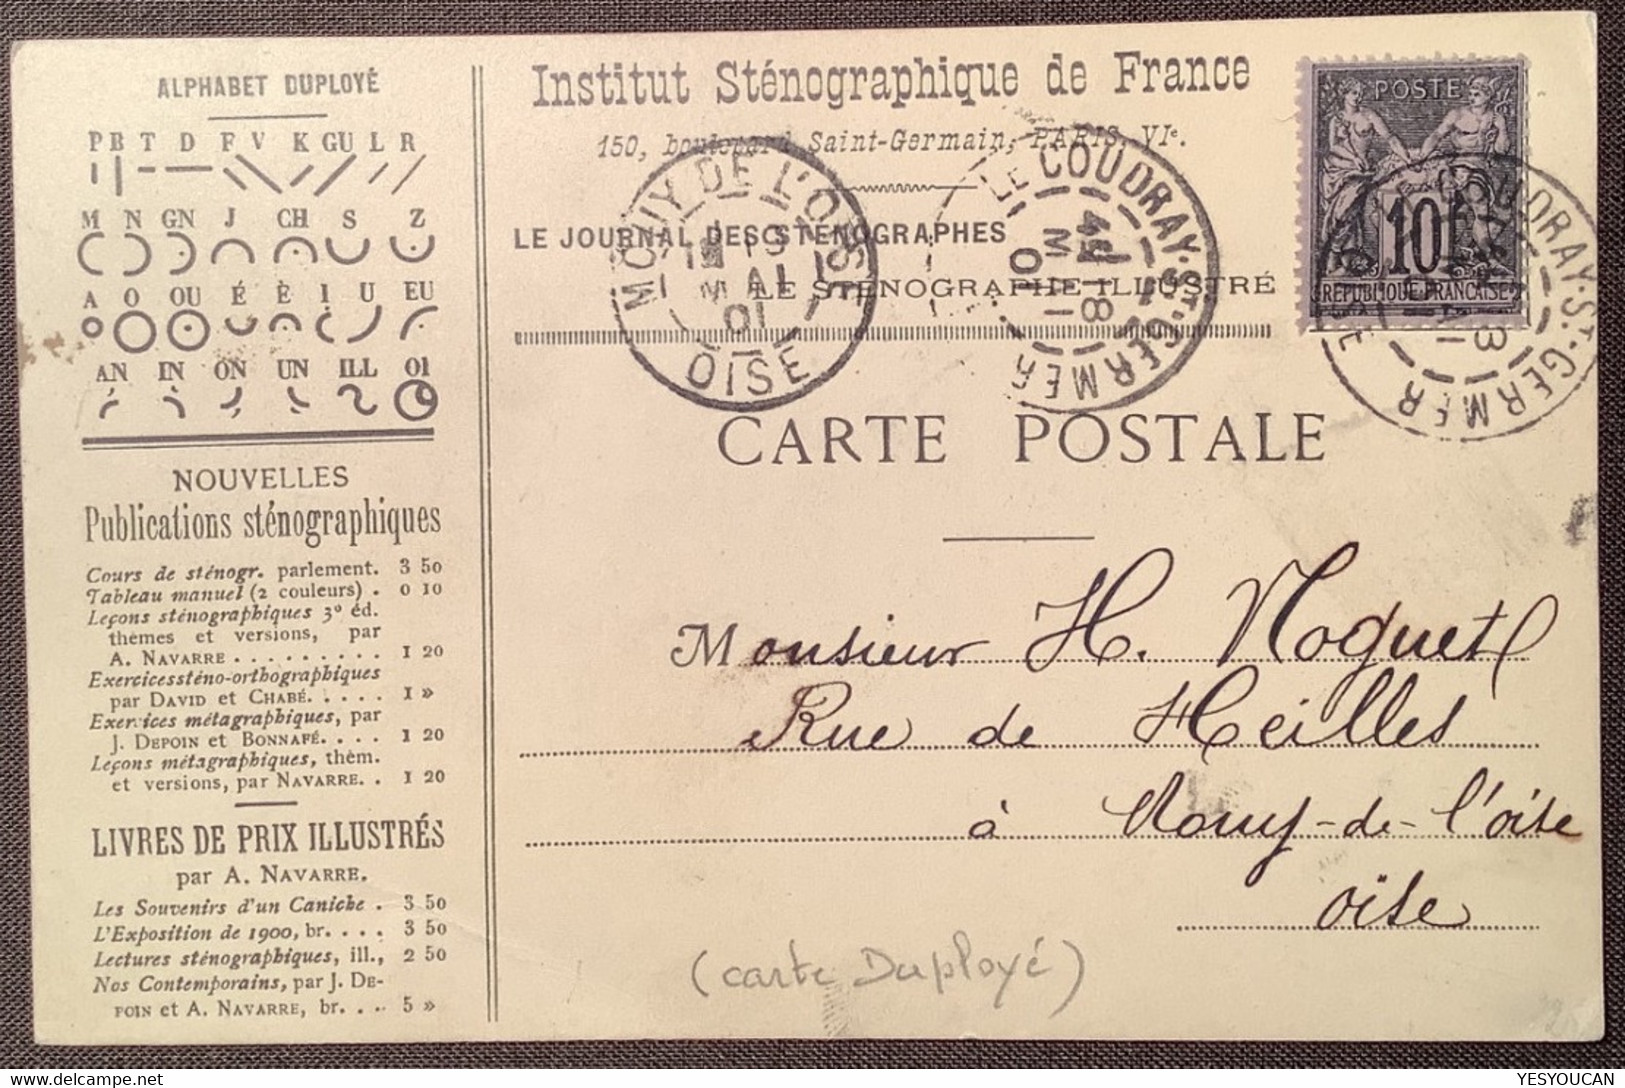 ALPHABET DUPLOYÉ
P B T D F V K GU L R
M N GN J CH S Z
A O OU É È I U EU
AN IN ON UN ILL OI
NOUVELLES
Publications sténographiques
Cours de sténogr. parlement. 3 50
Tableau manuel (2 couleurs) . 0 10
Leçons sténographiques 3º éd.
thèmes et versions, par
A. NAVARRE . . . . . . . . . 1 20
Exercices sténo-orthographiques
par DAVID et CHABÉ. . . . . 1 »
Exercices métagraphiques, par
J. DEPOIN et BONNAFÉ. . . . 1 20
Leçons métagraphiques, thèm.
et versions, par NAVARRE. . 1 20
LIVRES DE PRIX ILLUSTRÉS
par A. NAVARRE.
Les Souvenirs d'un Caniche . 3 50
L'Exposition de 1900, br. . . . 3 50
Lectures sténographiques, ill., 2 50
Nos Contemporains, par J. DE-
POIN et A. NAVARRE, br. . . . 5 »
Institut Sténographique de France
150, boulevard Saint-Germain, PARIS, VIe.
LE JOURNAL DES STÉNOGRAPHES
LE STÉNOGRAPHE ILLUSTRÉ
MOUY DE L'OISE
13
MAI
01
OISE
LE COUDRAY-St-GERMER
18
MAI
01
POSTE
10
REPUBLIQUE FRANÇAISE
COUDRAY-St-GERMER
CARTE POSTALE
Monsieur H. Noquet
Rue de Heilles
à Mouy-de-l'oise
oise
(carte Duployé)
YESYOUCAN